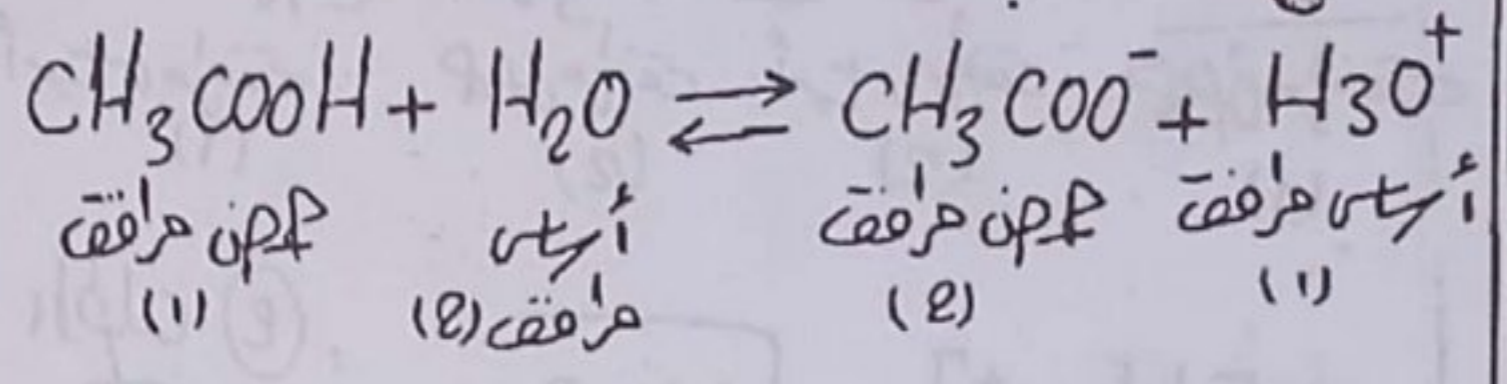 CH₃COOH + H₂O ⇌ CH₃COO⁻ + H3O⁺
حمض مرافق
(1)
أساس
مرافق (2)
حمض مرافق
(2)
أساس مرافق
(1)